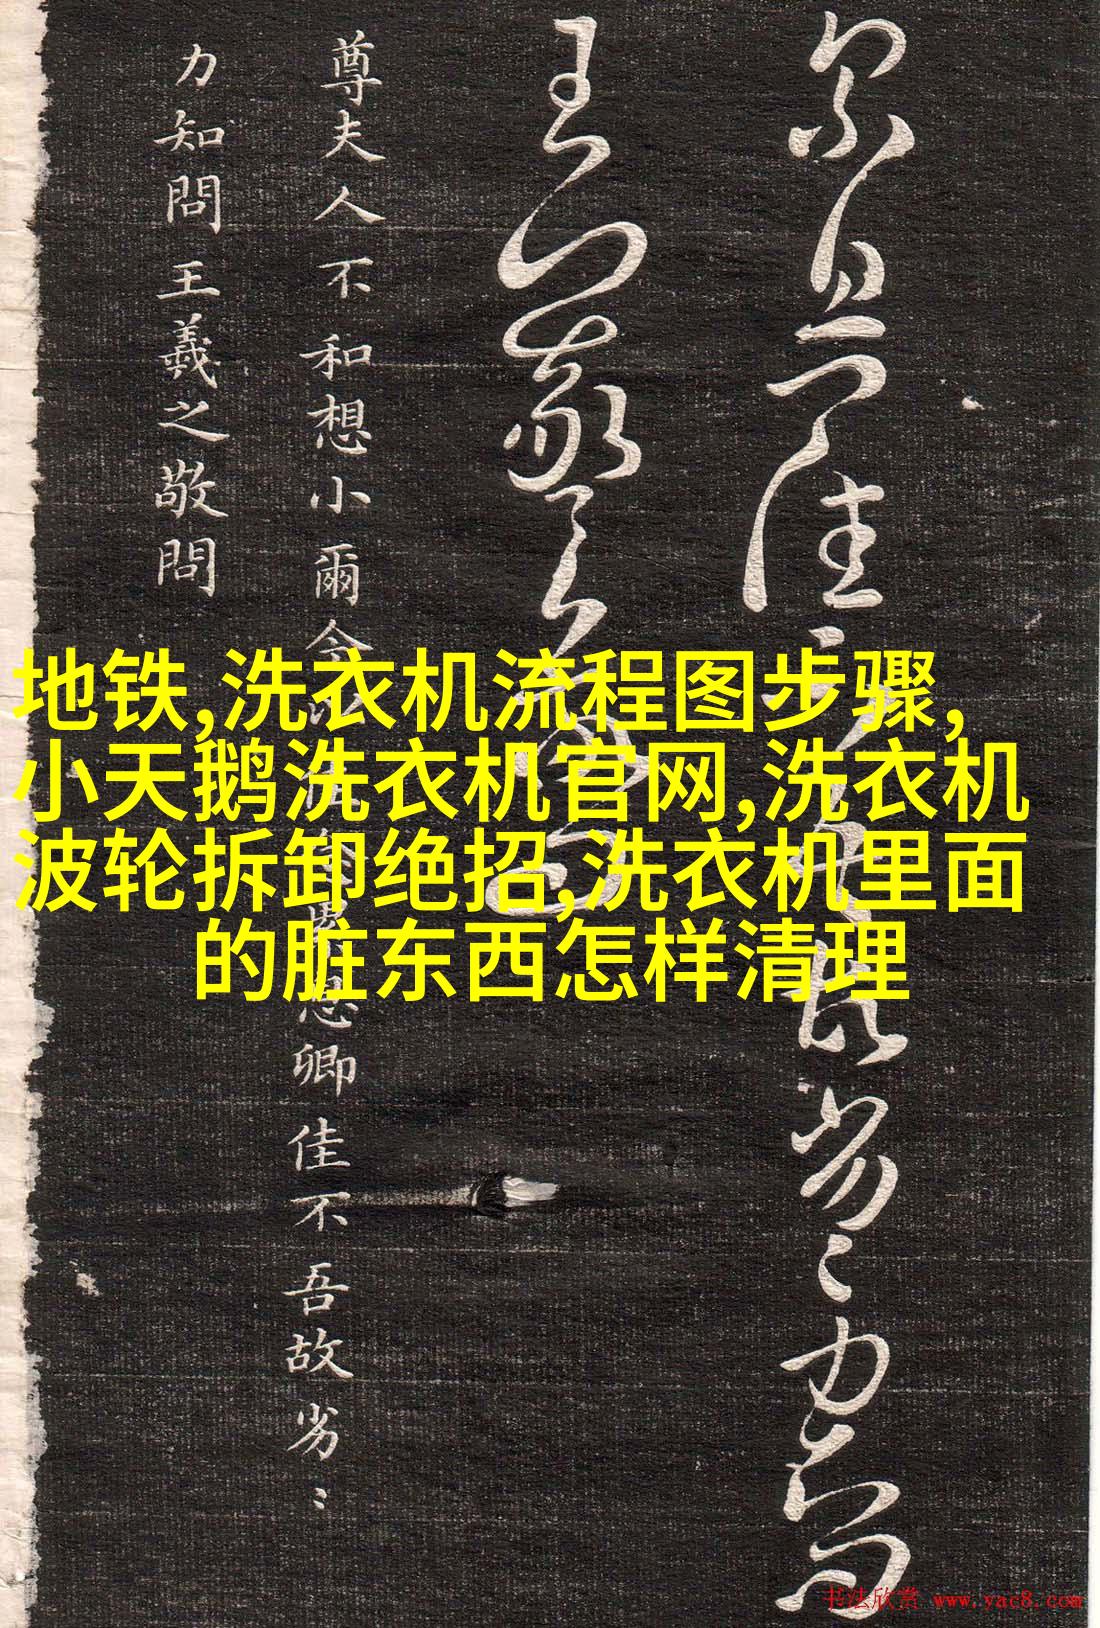 佳不吾故劣〃力知問
王羲之敬問
尊夫人不和想小爾今息卿佳不吾故劣〃
力知問王羲之敬問
地铁,洗衣机流程图步骤,
小天鹅洗衣机官网,洗衣机
波轮拆卸绝招,洗衣机里面
的脏东西怎样清理
书法欣赏 www.yac8.com